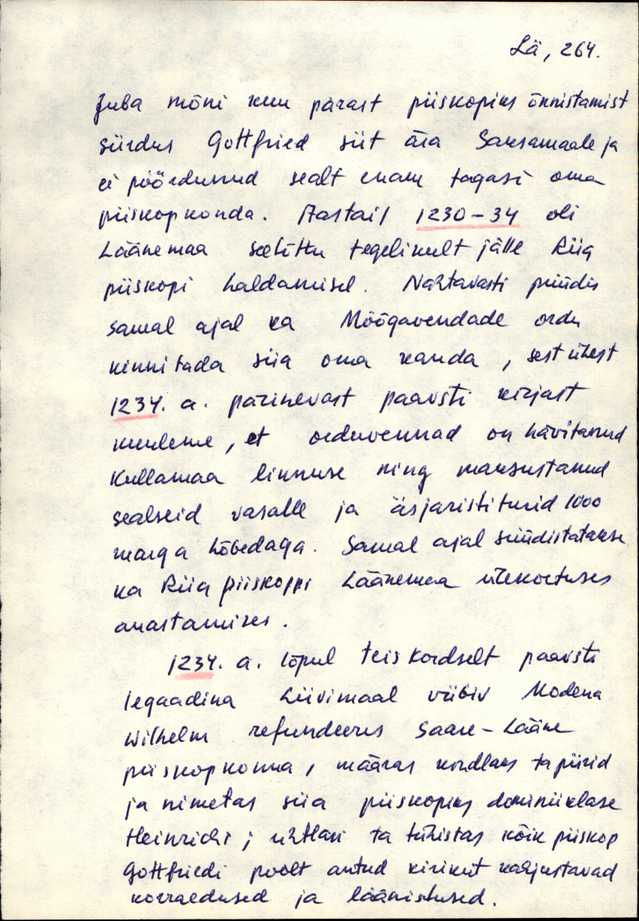 Lä, 264.
Juba mõni kuu pärast piiskopiks õnnistamist
siirdus Gottfried siit ära Saksamaale ja
ei pöördunud sealt enam tagasi oma
piiskopkonda. Aastail 1230-34 oli
Läänemaa seetõttu tegelikult jälle Riia
piiskopi haldamisel. Nähtavasti püüdis
samal ajal ka Mõõgavendade ordu
kinnitada siia oma kanda, sest ühest
1234. a. pärinevast paavsti kirjast
kuuleme, et orduvennad on hävitanud
Kullamaa linnuse ning maksustanud
sealseid vasalle ja äsjaristituid 1000
marga hõbedaga. Samal ajal süüdistatakse
ka Riia piiskoppi Läänemaa ülekohtuses
anastamises.
1234. a. lõpul teiskordselt paavsti
legaadina Liivimaal viibiv Modena
Wilhelm refundeeris Saare-Lääne
piiskopkonna, määras kindlaks ta piirid
ja nimetas siia piiskopiks dominiiklase
Heinrichi; ühtlasi ta tühistas kõik piiskop
Gottfriedi poolt antud kirikut kahjustavad
korraldused ja läänistused.